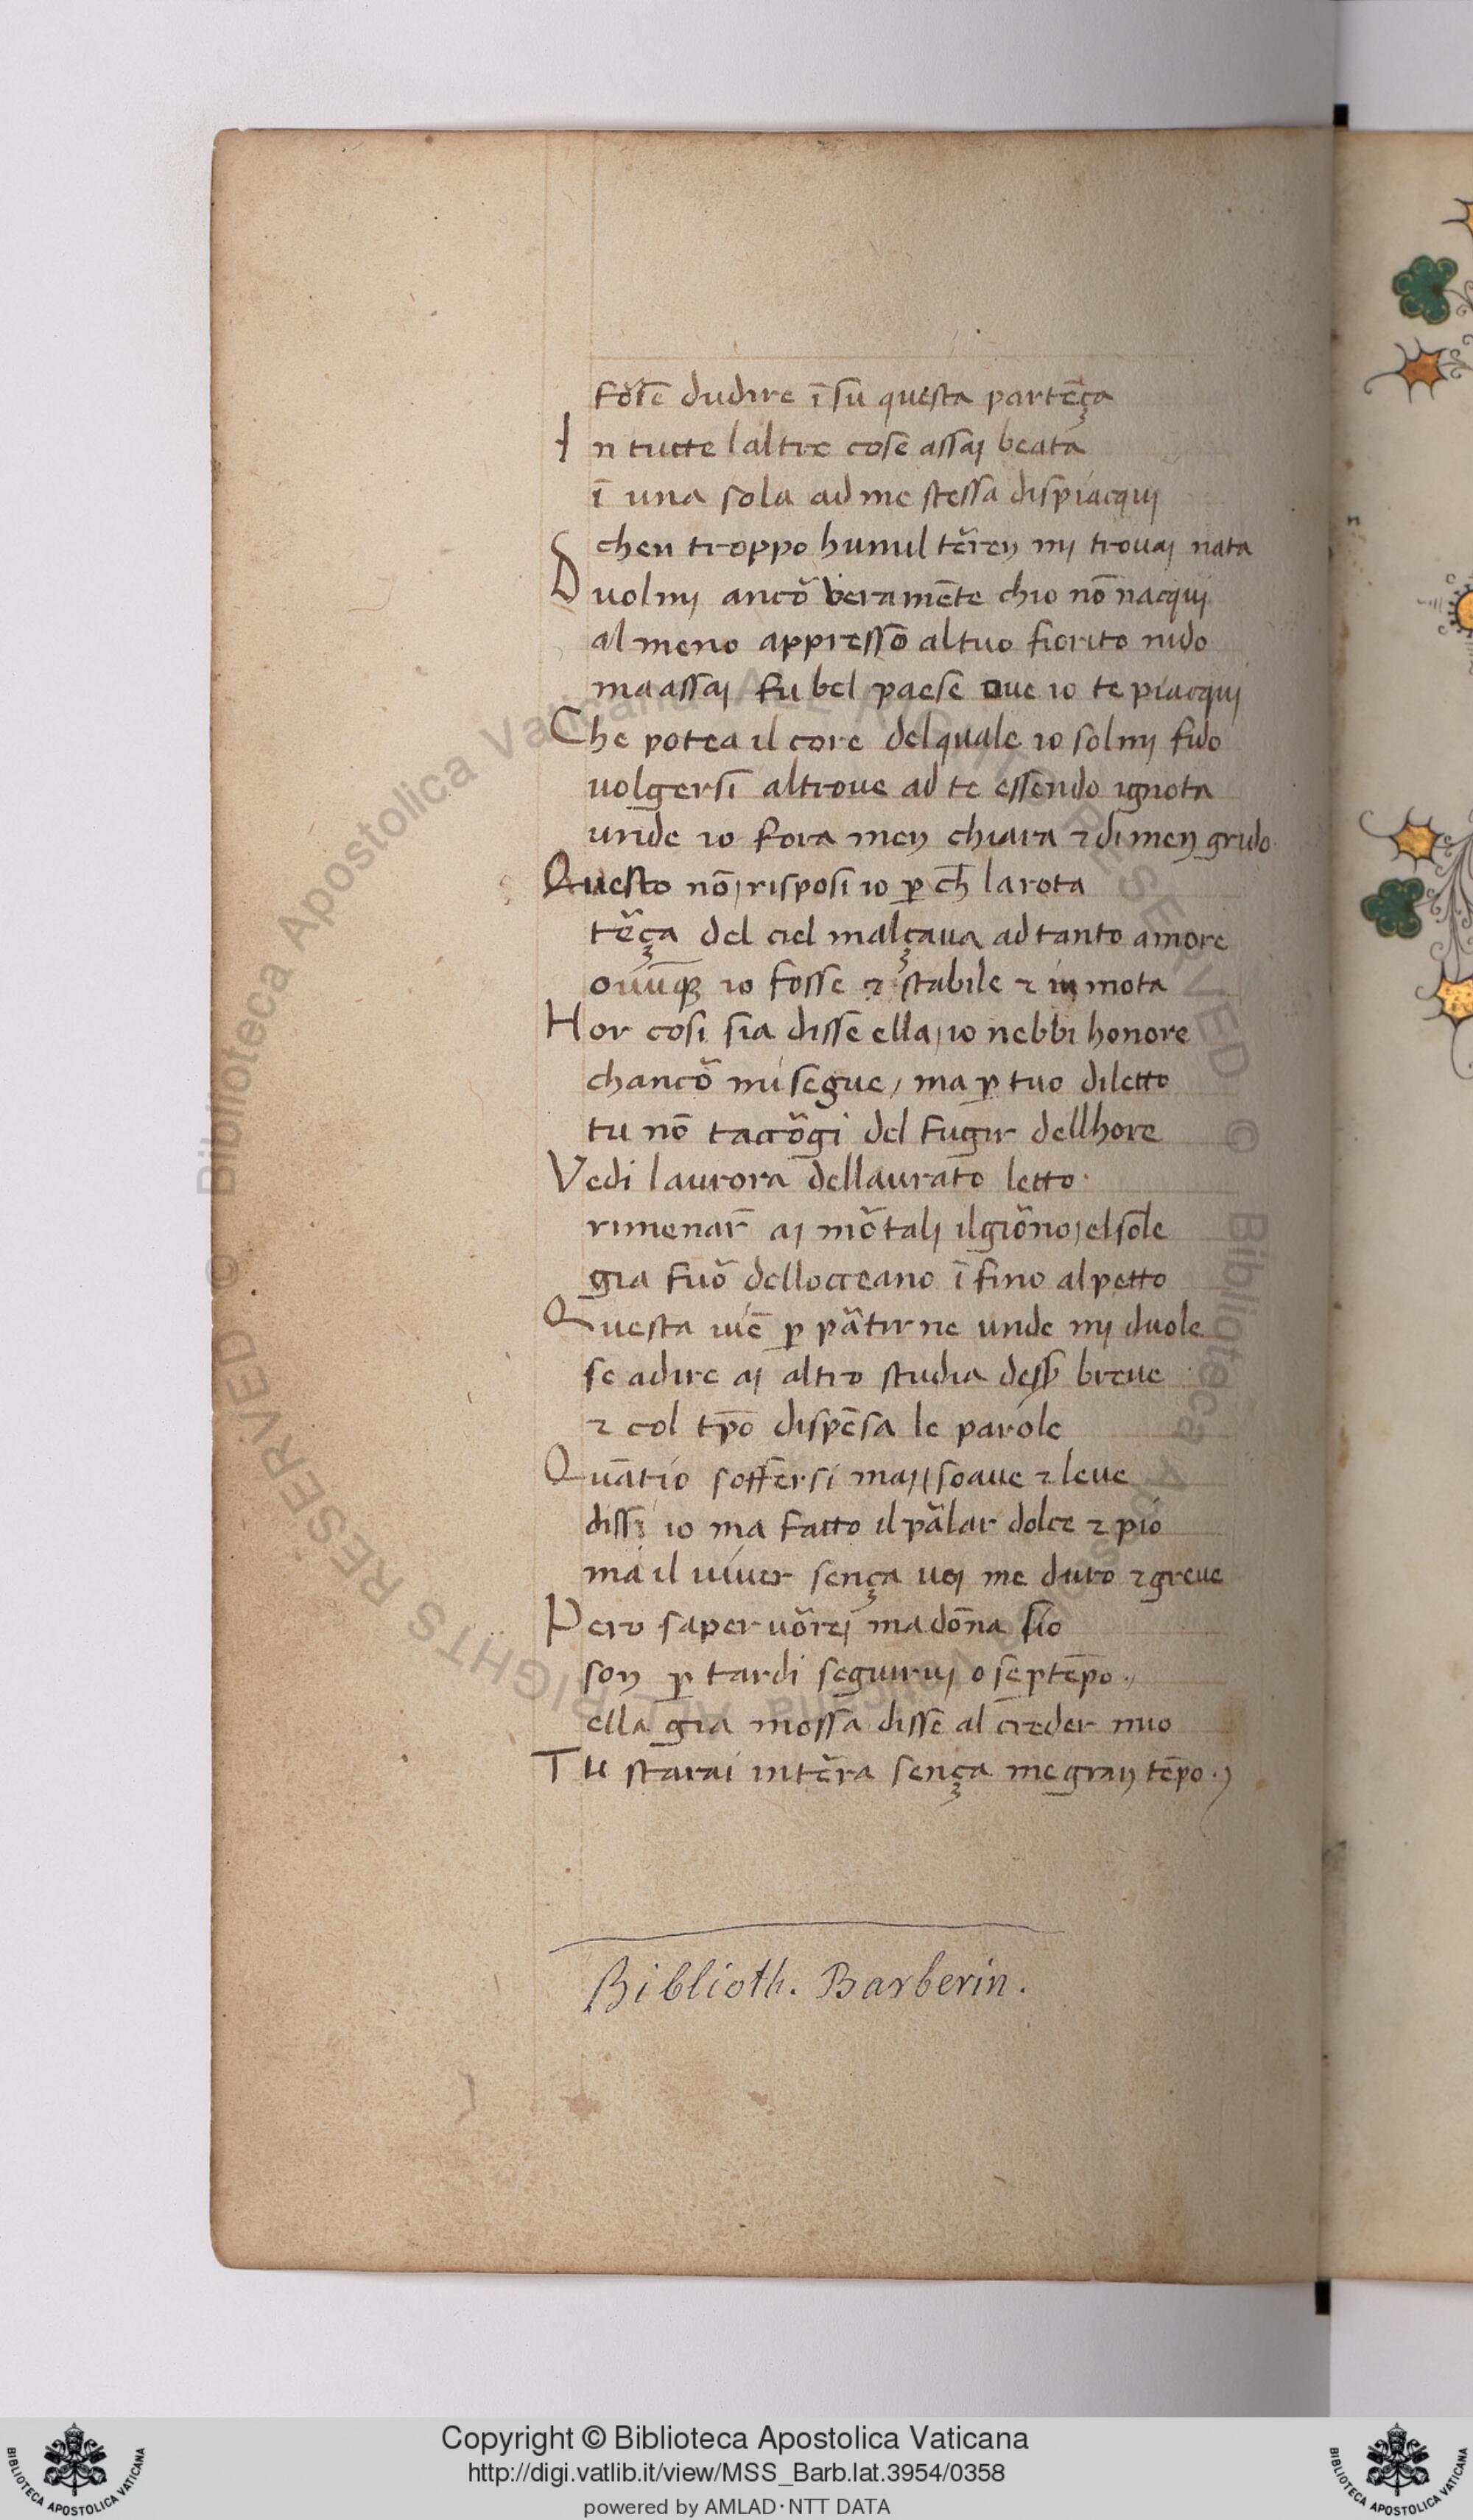 forſe dudire ī ſu queſta partēça
In tutte laltre coſe aſſaj beata
ī una ſola ad me ſteſſa diſpiacquj
chen troppo humil tēren mj trouaj nata
Duolmj ancō veramēte chio nō nacquj
al meno appreſſo al tuo fiorito nido
ma aſſaj fu bel paeſe oue io te piacquj
Che potea il core del quale io ſol mj fido
volgerſi altroue ad te eſſendo ignota
unde io fora men chiara ⁊ di men grido
Queſto nō, riſpoſi io ꝑ ch̄ la rota
tēça del ciel malçaua ad tanto amore
ouūqꝫ io foſſe ⁊ ſtabile ⁊ in mota
Hor coſi ſia diſſe ella, io nebbi honore
chancō mi ſegue, ma ꝑ tuo diletto
tu nō taccōgi del fugir dellhore
Vedi laurora dellaurato letto.
rimenar̄ aj mōtalj il giōno, el ſole
gia fuō dellocceano ī fino al petto
Queſta viē ꝑ pātirne unde mj duole
ſe a dire aj altro ſtudia deſſ breue
⁊ col tp̄o diſpēſa le parole
Quātio ſofferſi maj, ſoaue ⁊ leue
diſſi io ma fatto il pālar dolce ⁊ pio
ma il viuer ſença uoj me duro ⁊ greue
Pero ſaper uōrej madōna ſio
ſon ꝑ tardi ſeguiruj o ſe ꝑ tēpo.
ella gia moſſa diſſe al creder mio
Tu ſtarai in tēra ſença me gran tēpo.
Biblioth. Barberin.
Copyright © Biblioteca Apostolica Vaticana
http://digi.vatlib.it/view/MSS_Barb.lat.3954/0358
powered by AMLAD·NTT DATA